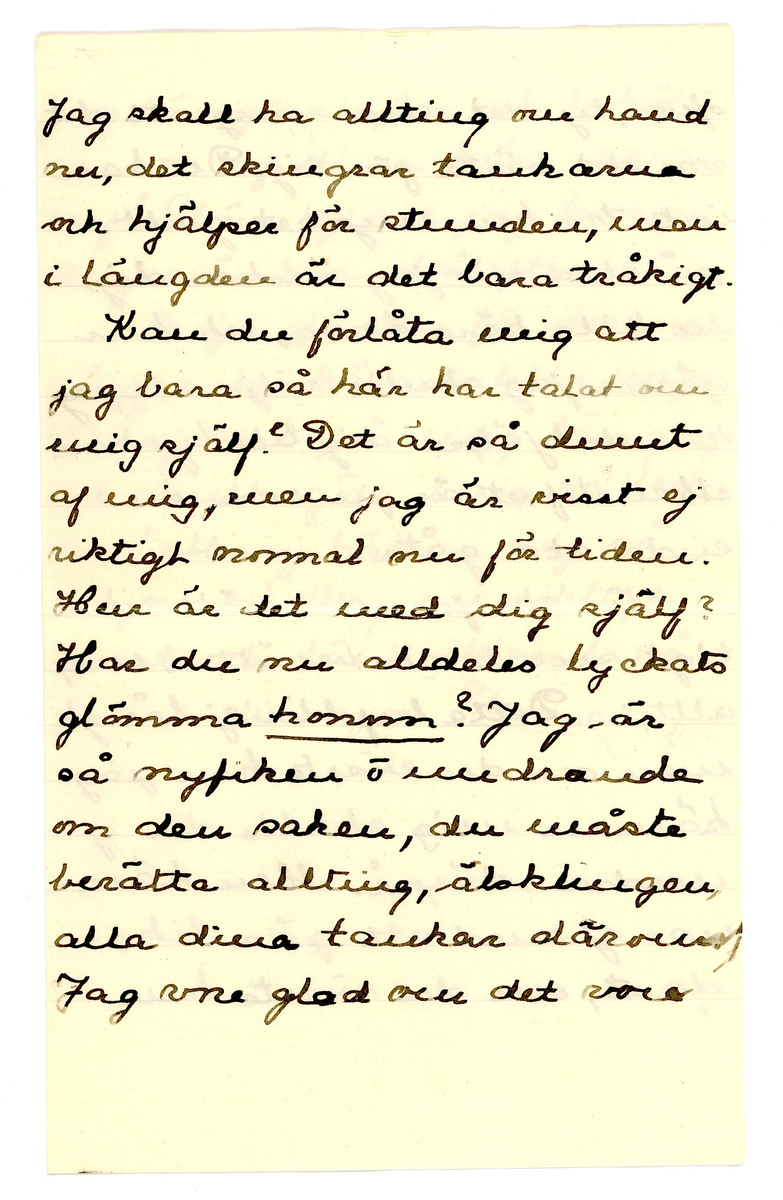 Jag skall ha allting om hand
nu, det skingrar tankarna
och hjälper för stunden, men
i längden är det bara tråkigt.
Kan du förlåta mig att
jag bara så här har talat om
mig själf? Det är så dumt
af mig, men jag är visst ej
riktigt normal nu för tiden.
Hur är det med dig själf?
Har du nu alldeles lyckats
glömma honom? Jag är
så nyfiken o undrande
om den saken, du måste
berätta allting, älsklingen,
alla dina tankar därom.
Jag vore glad om det vore